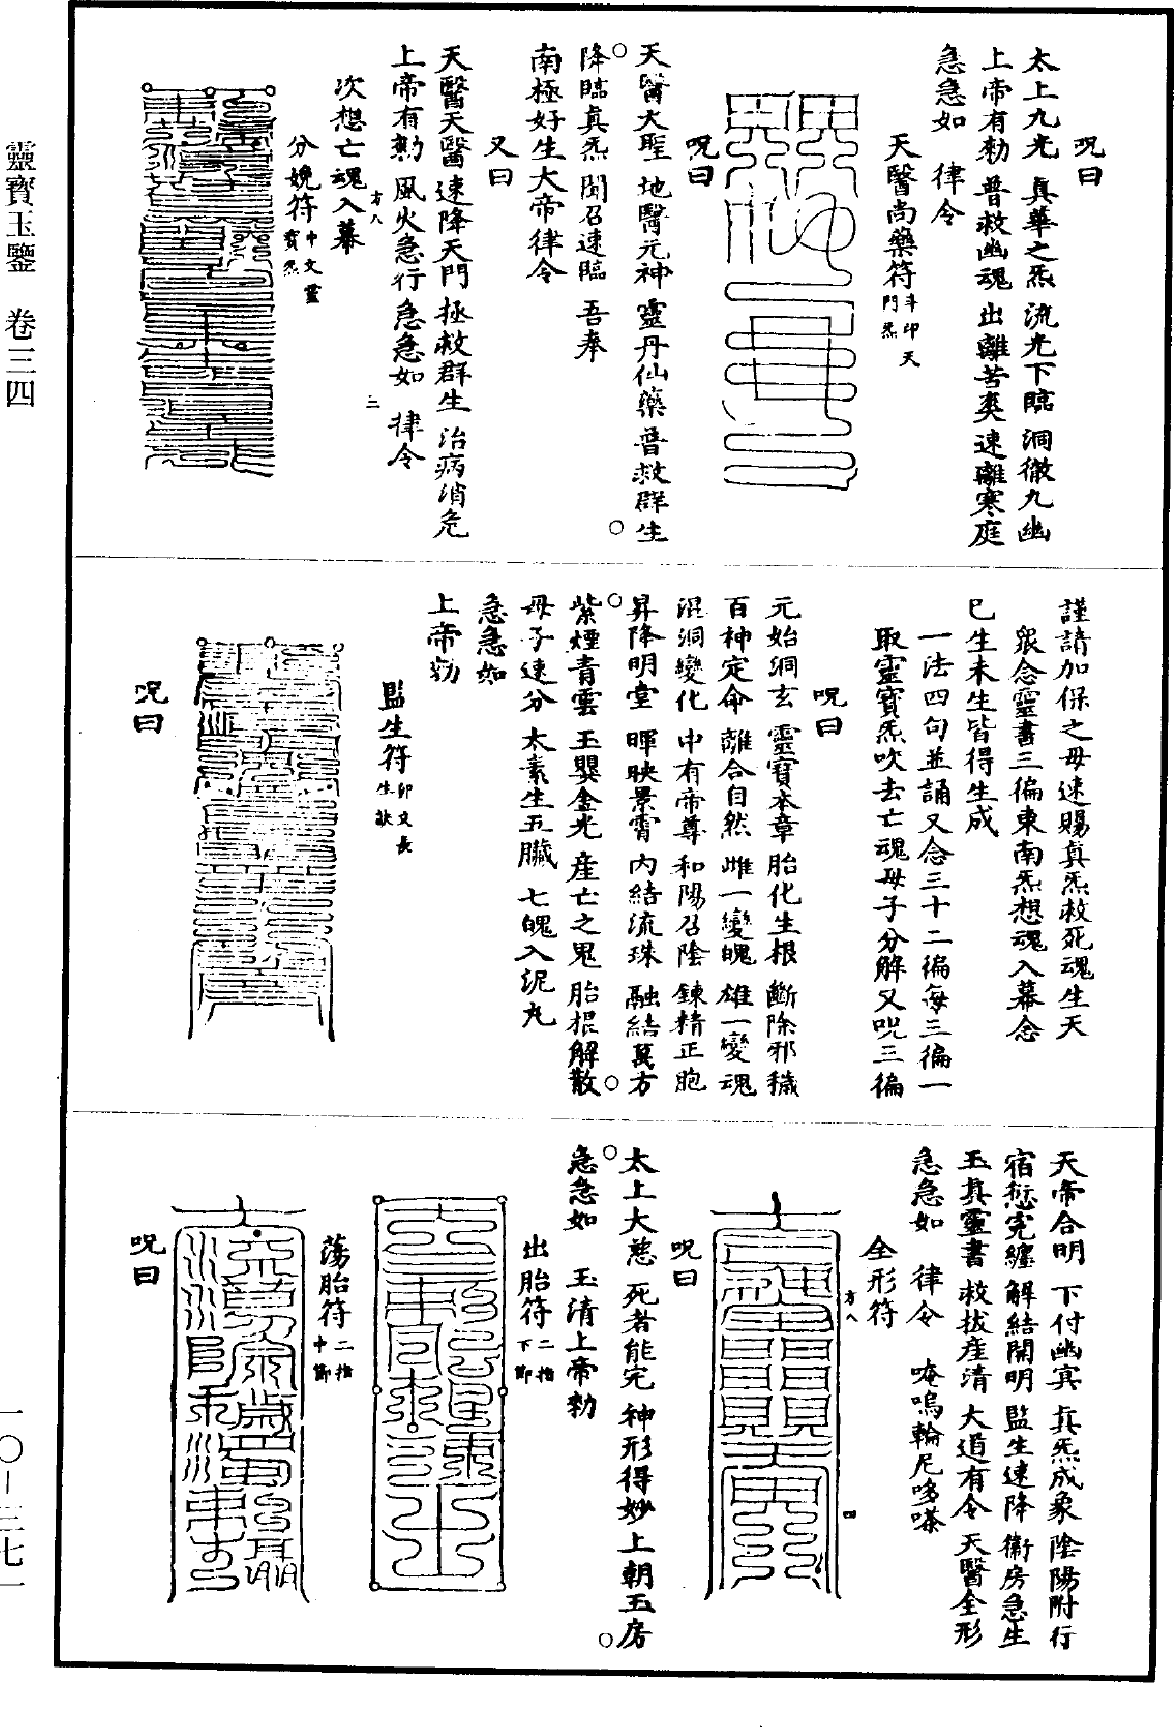 呪曰
太上九光 真華之炁 流光下臨 洞徹九幽
上帝有勅 普救幽魂 出離苦爽 速離寒庭
急急如 律令
天醫尚藥符 斗印天門炁
呪曰
天醫大聖 地醫元神 靈丹仙藥 普救群生
降臨真炁 聞召速臨 吾奉
南極好生大帝律令
又曰
天醫天醫 速降天門 拯救群生 治病消危
上帝有勅 風火急行 急急如 律令
方八 三
次想亡魂入幕
分娩符 中文靈寶炁
謹請加保之母速賜真炁救死魂生天
衆念靈書三徧東南炁想魂入幕念
已生未生皆得生成
一法四句並誦又念三十二徧每三徧一
取靈寶炁吹去亡魂母子分解又呪三徧
呪曰
元始洞玄 靈寶本章 胎化生根 斷除邪穢
百神定命 離合自然 雌一變魄 雄一變魂
混洞變化 中有帝尊 和陽召陰 鍊精正胞
昇降明堂 暉映景霄 內結流珠 融結萬方
紫煙青雲 玉嬰金光 產亡之鬼 胎根解散
母子速分 太素生五臟 七魄入泥丸
急急如
上帝勅
監生符 卯文長生訣
呪曰
天帝合明 下付幽冥 真炁成象 陰陽附行
宿愆完纏 解結開明 監生速降 衛房急生
玉真靈書 救拔産清 大道有令 天醫全形
急急如 律令 唵嗚輪尼哆㗭
全形符
方八 四
呪曰
太上大慈 死者能完 神形得妙 上朝玉房
急急如 玉清上帝勅
出胎符 二指下節
蕩胎符 二指中節
呪曰
靈寶玉鑒 卷三四
一〇—三七一